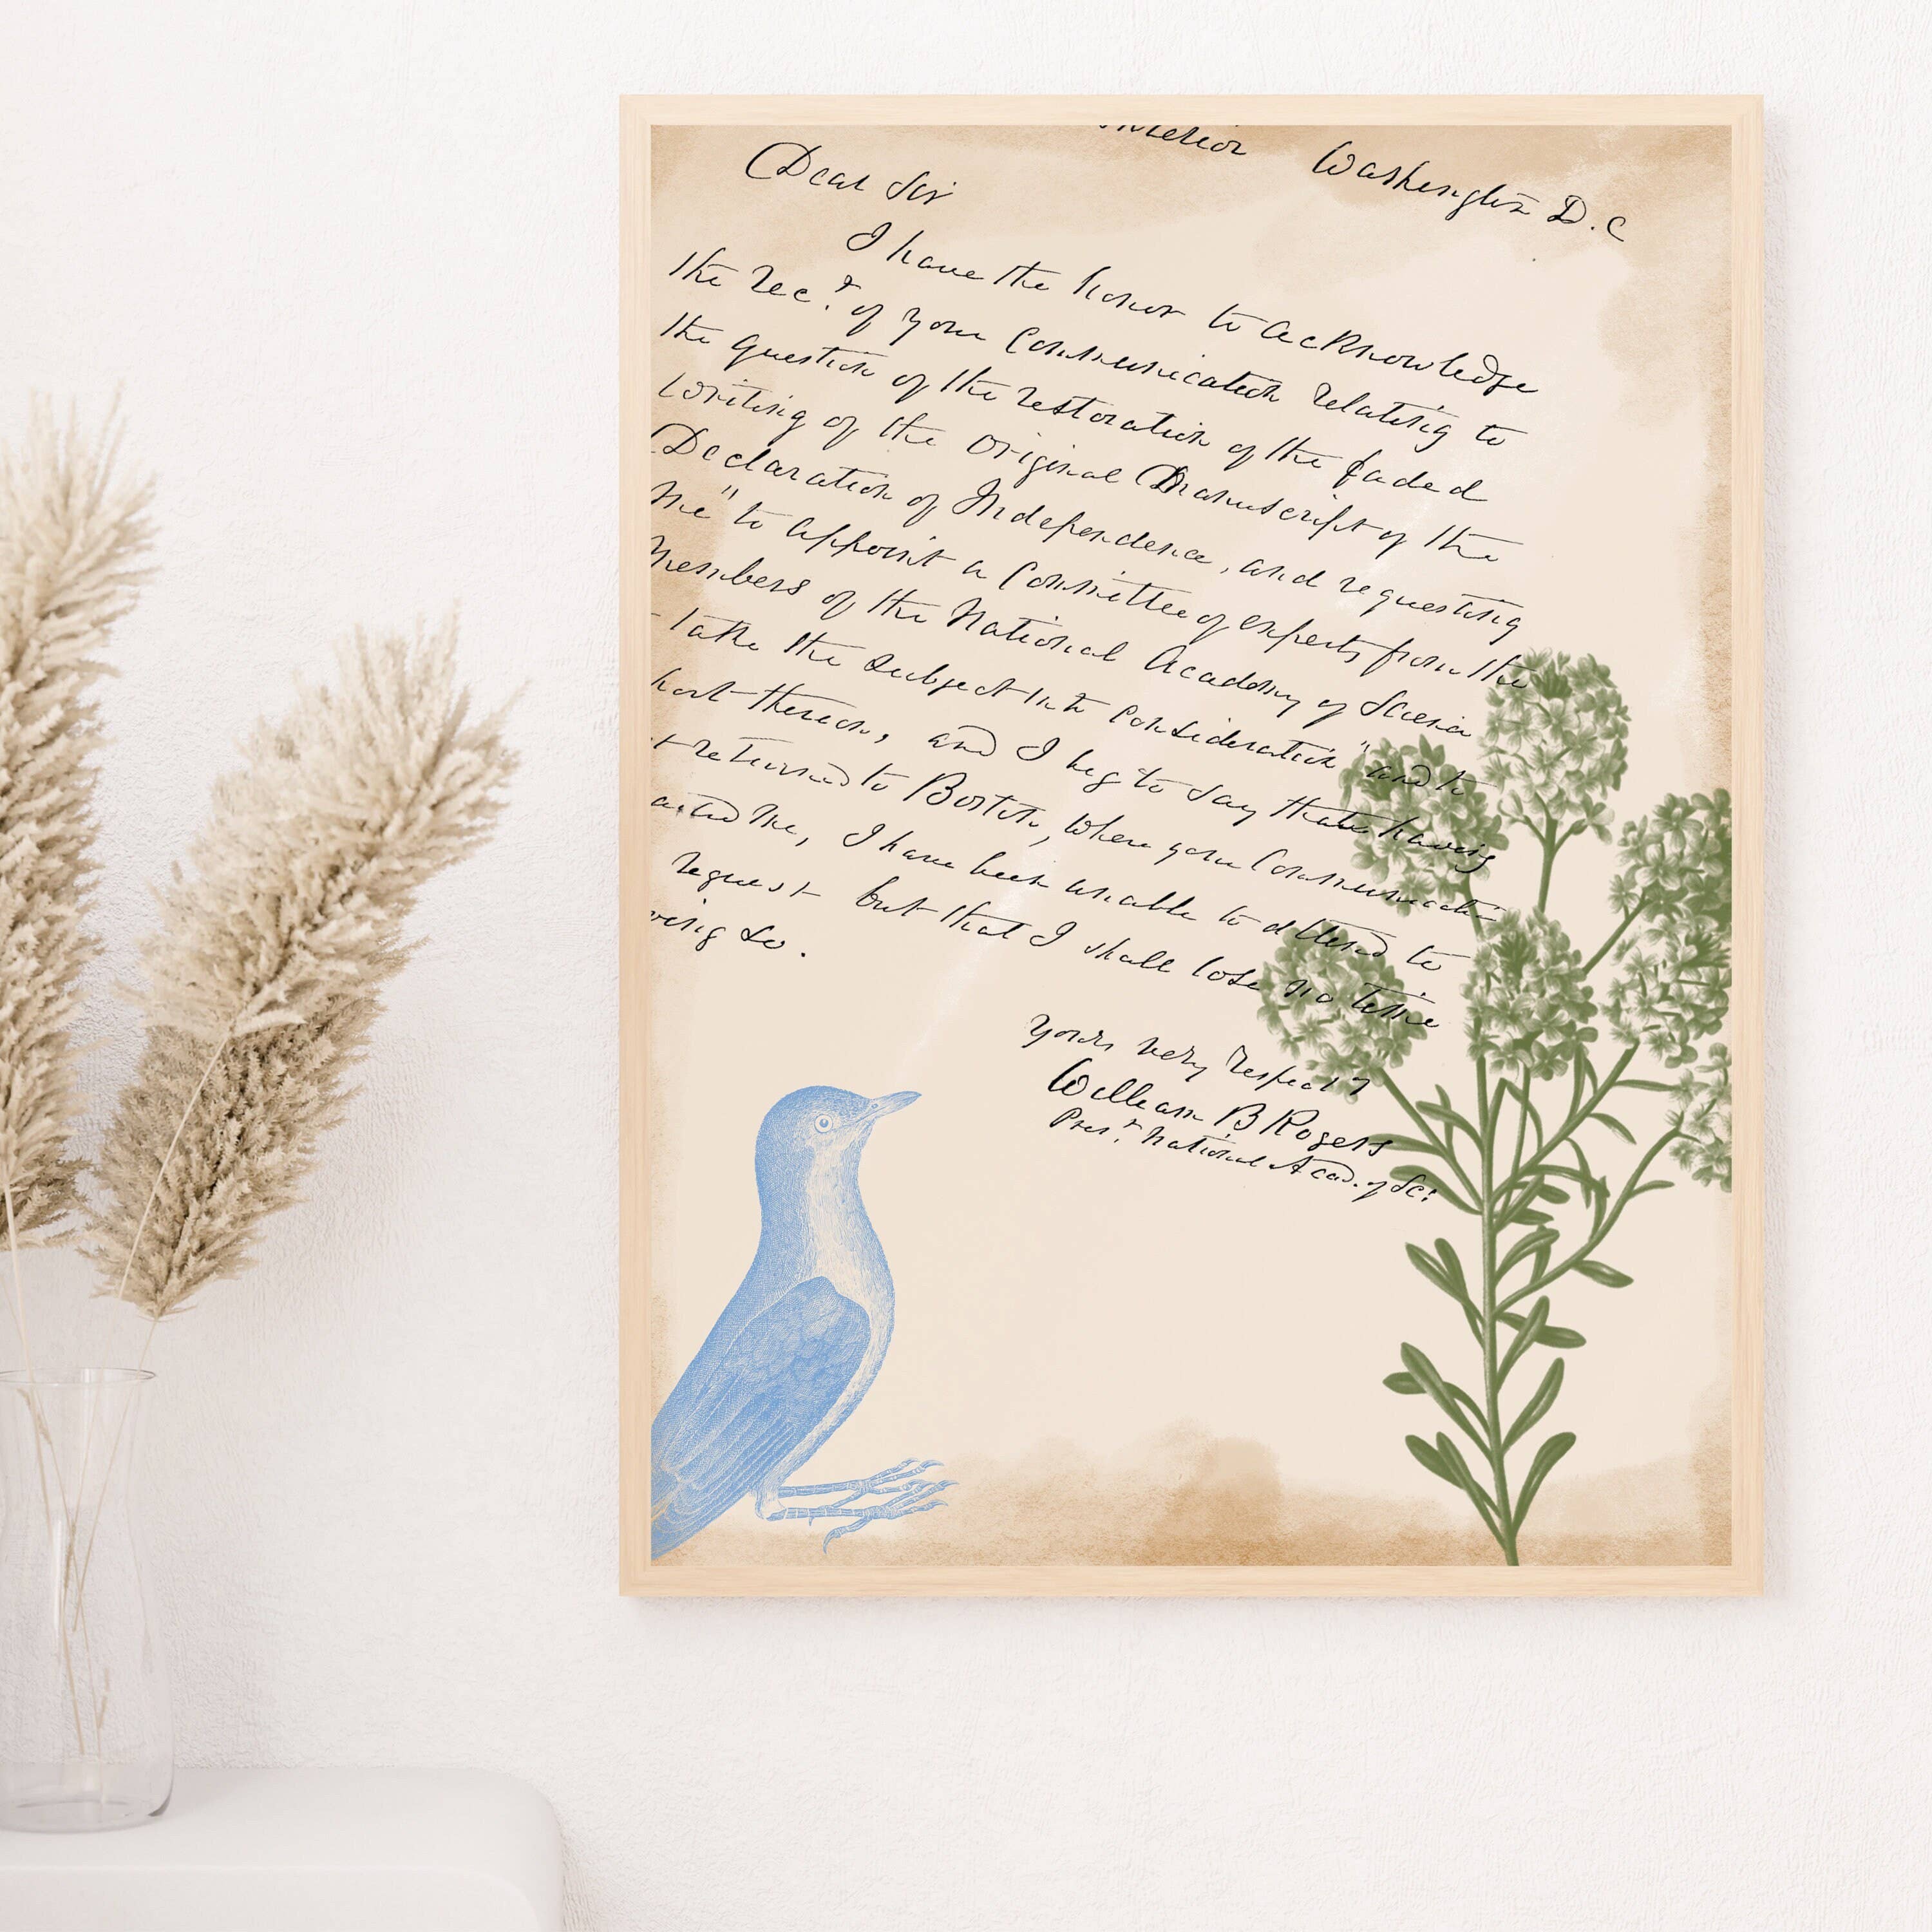 Washington D.C
Dear Sir
I have the honor to acknowledge
the rec.t of your Communication relating to
the question of the restoration of the faded
writing of the original Manuscript of the
Declaration of Independence, and requesting
me "to appoint a Committee of experts from the
Members of the National Academy of Science
take the subject into consideration" and to
thereon, and I beg to say that having
returned to Boston, where your Communication
me, I have been unable to attend to
request but that I shall lose no time
so.
Yours very respect.y
William B Rogers
Pres.t National Acad. of Sci